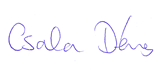 Csala Dénes